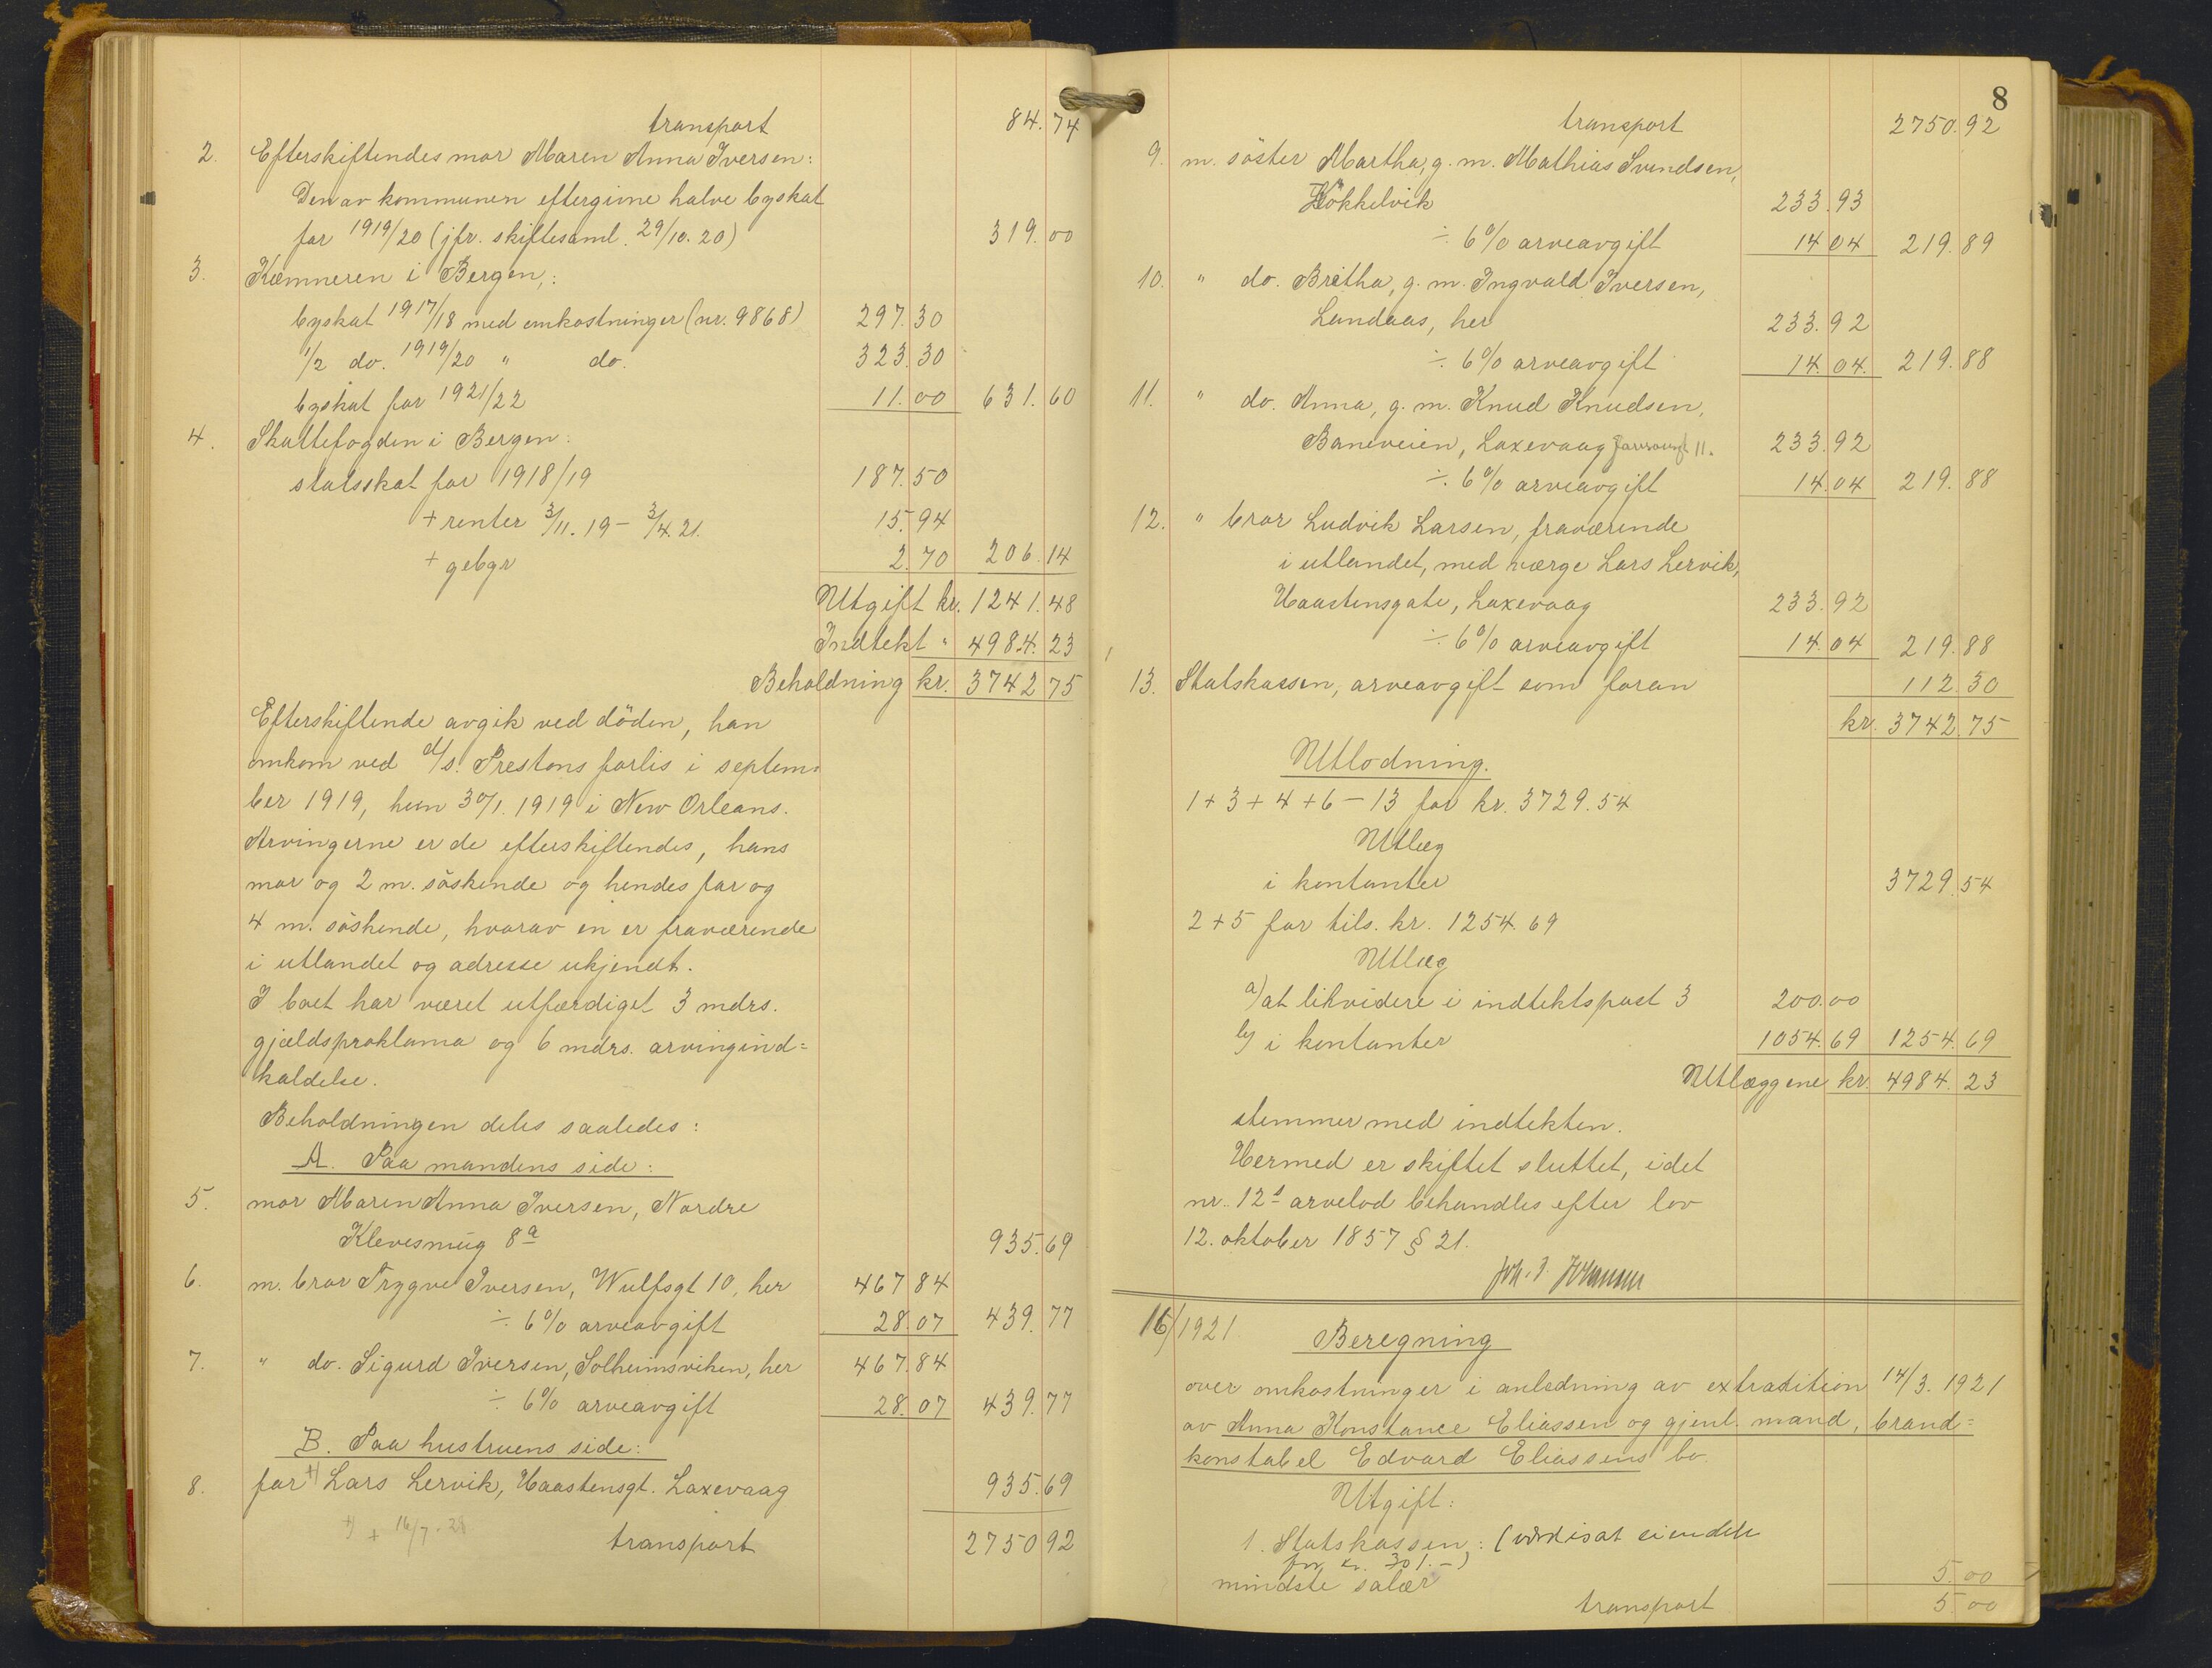 transport 84.74
2. Efterskiftendes mor Maren Anna Iversen:
Den av kommunen eftergivne halve byskat
for 1919/20 (jfr. skiftesaml. 29/10.20) 319.00
3. Kæmneren i Bergen,:
byskat 1917/18 med omkostninger (nr. 9868) 297.30
1/2 do. 1919/20 " do. 323.30
byskat for 1921/22 11.00 631.60
4. Skattefogden i Bergen:
statsskat for 1918/19 187.50
+ renter 3/11.19 - 3/4.21. 15.94
+ gebyr 2.70 206.14
Utgift kr. 1241.48
Indtekt " 4984.23
Beholdning kr. 3742.75
Efterskiftende avgik ved döden, han
omkom ved d/s. Prestons forlis i septem-
ber 1919, hun 30/1.1919 i New Orleans.
Arvingerne er de efterskiftendes, hans
mor og 2 m. söskende og hendes far og
4 m. söskende, hvorav en er fraværende
i utlandet og adresse ukjendt.
I boet har været utfærdiget 3 mdrs.
gjældsproklama og 6 mdrs. arvingind=
kaldelse.
Beholdningen deles saaledes:
A. Paa mandens side:
5. mor Maren Anna Iversen, Nordre
Klevesmug 8a 935.69
6. m. bror Trygve Iversen, Wulfsgt 10, her 467.84
÷ 6% arveavgift 28.07 439.77
7. " do. Sigurd Iversen, Solheimsviken, her 467.84
÷ 6% arveavgift 28.07 439.77
B. Paa hustruens side:
8. far +) Lars Lervik, Haastensgt. Laxevaag 935.69
+) + 16/7.28
transport 2750.92
8
transport 2750.92
9. m. söster Martha, g. m. Mathias Svendsen,
Hökkelvik 233.93
÷ 6% arveavgift 14.04 219.89
10. " do. Britha, g. m. Ingvald Iversen,
Landaas, her 233.92
÷ 6% arveavgift 14.04. 219.88
11. " do. Anna, g. m. Knud Knudsen,
Baneveien, Laxevaag 11. 233.92
÷ 6% arveavgift 14.04 219.88
12. " bror Ludvik Larsen, fraværende
i utlandet, med værge Lars Lervik,
Haastensgate, Laxevaag 233.92
÷ 6% arveavgift 14.04 219.88
13. Statskassen, arveavgift som foran 112.30
kr. 3742.75
Utlodning.
1+3+4+6-13 for kr. 3729.54
Utlæg
i kontanter 3729.54
2+5 for tils. kr. 1254.69
Utlæg
a) at likvidere i indtektspost 3 200.00
b) i kontanter 1054.69 1254.69
Utlæggene kr. 4984.23
stemmer med indtekten.
Hermed er skiftet sluttet, idet
nr. 12s arvelod behandles efter lov
12. oktober 1857 § 21.
16/1921. Beregning
over omkostninger i anledning av extradition 14/3.1921
av Anna Konstance Eliassen og gjenl. mand, brand=
konstabel Edvard Eliassens bo.
Utgift:
1. Statskassen,: (værdisat eiendele
for kr. 301.-)
mindste salær 5.00
transport 5.00